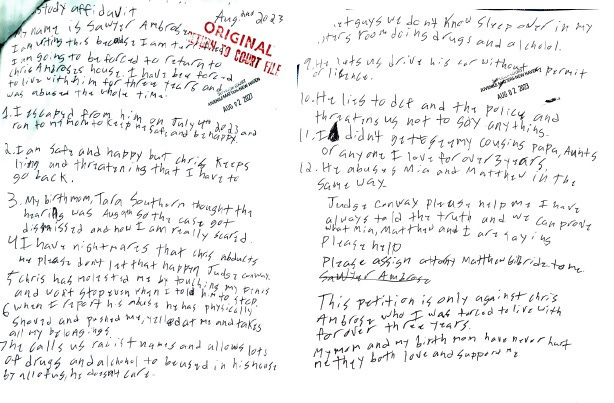 study affidavit
Aug 2023
My name is Sawyer Ambrose
I am writing this because I am
I am going to be forced to return to
Chris Ambrose's house. I have been forced
to live with him for three years and
was abused the whole time.
ORIGINAL
RETURN TO COURT FILE
AUG 02 2023
1. I escaped from him on July 2023 and
ran to my mom to keep me safe and be happy.
2. I am safe and happy but chris keeps
lying and threatening that I have to
go back.
3. My birth mom, Tara Southern thought the
hearing was so the case got
dismissed and now I am really scared.
4 I have nightmares that chris abducts
me please dont let that happen, Judge conway.
5 Chris has molested me by touching my penis
and wont stop even when I told him to stop.
6 when I report his abuse he has physically
shoved and pushed me, yelled at me and takes
all my belongings.
7 he calls us racist names and allows lots
of drugs and alchohol to be used in his house
by all of us, he doesnt care.
guys we dont know sleep over in my
room doing drugs and alcholol.
9. He lets us drive his car without permit
or licence.
AUG 02 2023
10. He lies to dcf and the police and
threatins us not to say anything.
11. I didn't get to see my cousins papa, Aunts
or anyone I love for over 3 years.
12. He abuses Mia and Matthew in the
same way.
Judge Conway please help me I have
always told the truth and we can prove
what Mia, Matthew and I are saying
Please help
Please assign Matthew to me.
Sawyer Ambrose
This petition is only against chris
Ambrose who I was forced to live with
for over three years.
My mom and my birth mom have never hurt
me they both love and support me